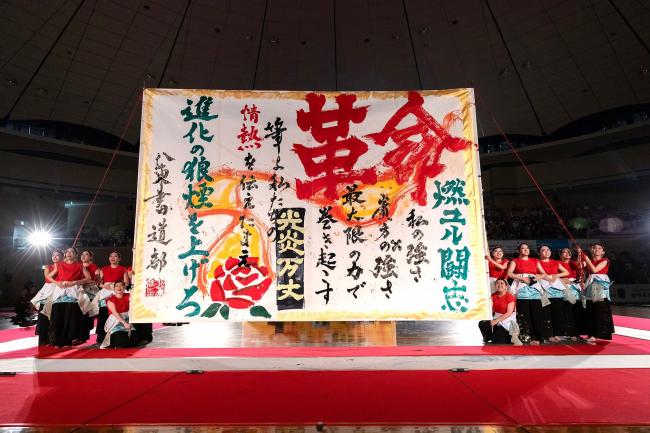 革命
燃ユル闘志
私の強さ
×
貴方の強さ
最大限の力で
巻き起こす
光炎万丈
筆よ私たちの
情熱を伝えたまえ
進化の狼煙を上げろ
書道部